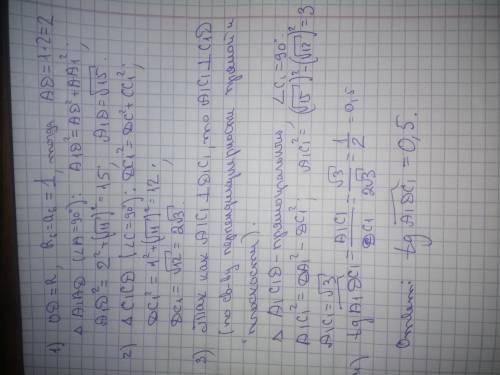 1) OD=R, R₆=a₆=1, тогда AD=1·2=2
△A1AD (∠A=90°): A1D²=AD²+AA1²;
A1D²=2²+(√11)²=15; A1D=√15;
2) △C1CD (∠C=90°): DC1²=DC²+CC1²;
DC1²=1²+(√11)²=12;
DC1=√12=2√3;
3) Так как A1C1⊥D1C1, то A1C1⊥C1D
(по св-ву перпендикулярности прямой и
плоскости).
△A1C1D-прямоугольный, ∠C1=90°
A1C1²=DA1²-DC1²; A1C1²=(√15)²-(√12)²=3
A1C1=√3
4) tgA1DC1=A1C1/DC1=√3/2√3=1/2=0,5
Ответ: tgA1DC1=0,5.